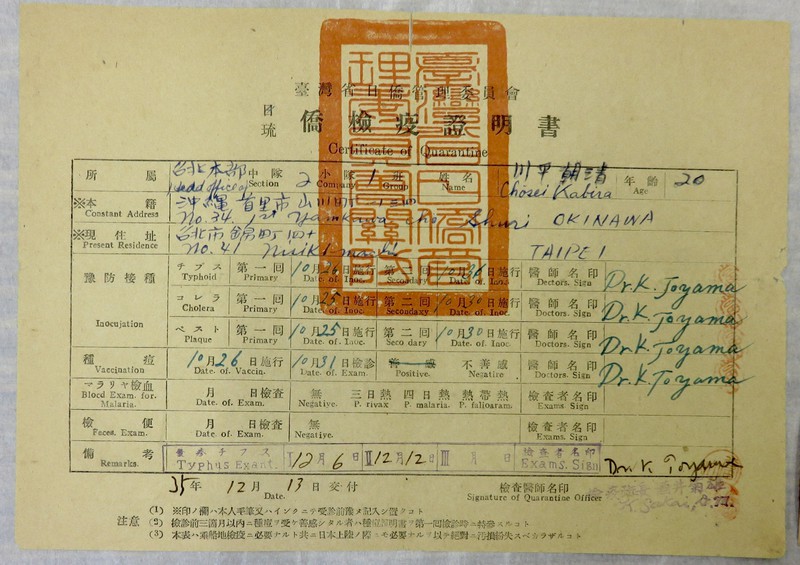 臺灣省日僑管理委員會
琉僑檢疫證明書
Certificate of Quarantine
所屬 台北本部 中隊 2 小隊 1 班 姓名 川平朝清 年齡 20
head office of Section Company Group Name Chōsei Kabira Age
※本籍 沖縄 首里市 山川町
Constant Address No.34. 1st Yamkawa cho Shuri OKINAWA
※現住址 台北市 錦町 四十
Present Residence No.41 Nisiki-machi TAIPEI
豫防接種 チブス 第一回 10月26日施行 第二回 10月30日施行 醫師名印 Dr.K.Toyama
Typhoid Primary Date. of Inoc. Secondary Date. of. Inoc. Doctors. Sign
コレラ 第一回 10月25日施行 第二回 10月30日施行 醫師名印 Dr.K.Toyama
Cholera Primary Date. of Inoc. Secodary Date. of. Inoc. Doctors. Sign
Inocujation
ペスト 第一回 10月25日施行 第二回 10月30日施行 醫師名印 Dr.K.Toyama
Plaque Primary Date. of. Inoc. Seco dary Date. of. Inoc. Doctors. Sign
種痘 10月26日施行 10月31日檢診 善感 不善感 醫師名印 Dr.K.Toyama
Vaccination Date. of Vaccin. Date. of Exam. Positive. Neratire Doctors. Sign
マラリヤ檢血 月 日檢查 無 三日熱 四日熱 熱帶熱 檢查者名印
Blood Exam. for Malaria. Date. of. Exam. Negative. P. rivax P. malaria. P. falioaram. Exams. Sign
檢便 月 日檢查 無 檢查者名印
Faces. Exam. Date. of. Exam. Negative. Exams. Sign
備考 發疹チフス I 12月6日 II 12月12日 III 月 日 檢查者名印 Dr.K.Toyama
Remarks. Typhus Exant. Exams. Sign
35年 12月 13日交付 檢查醫師名印
Signature of Quarantine Officer
注意 (1) ※印ノ欄ハ本人毛筆又ハインクニテ受診前豫メ記入シ置クコト
(2) 檢診前三箇月以內ニ種痘ヲ受ケ善感シタル者ハ種痘證明書ヲ第一回檢診時ニ持參スルコト
(3) 本表ハ乘船地檢疫ニ必要ナルト共ニ日本上陸ノ際ニモ必要ナルヲ以テ絕對ニ汚損紛失スベカラザルコト